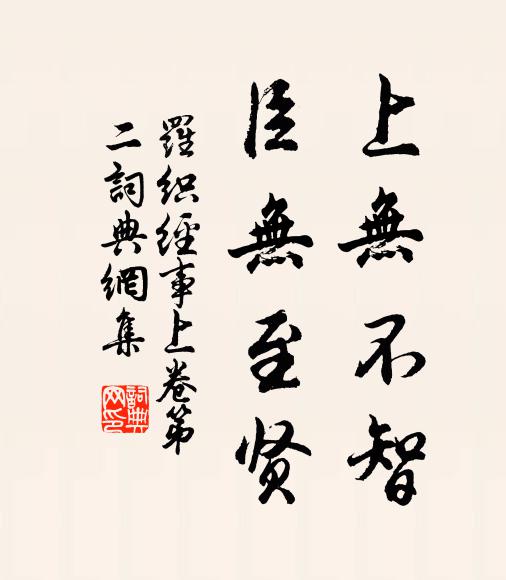 上無不智
臣無至贤
羅織經事上卷第
二詞典網集
詞典
网印